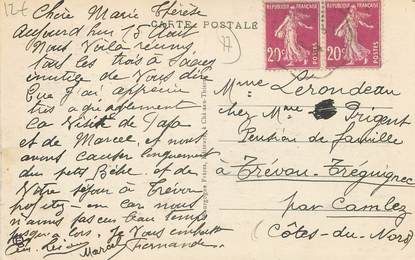 12€
Chère Marie Thérèse
CARTE POSTALE
77
Aujourd'hui 15 Août
Nous Voilà réunis
tous les trois à
inutile de Vous dire
que j'ai apprécié
très agréablement
la Visite de Papa
et de Marcel, et nous
avons causer longuement
du petit Bébé, et de
Votre séjour à Trévou
profitez-en car nous
n'avons pas eu beau temps
jusqu'à lors. Je Vous embrasse
Marcel Fernande
RÉPUBLIQUE FRANÇAISE
20c POSTES
RÉPUBLIQUE FRANÇAISE
20c POSTES
Mme Lerondeau
chez Mme Prigent
Pension de famille
à Trévou-Tréguignec
par Camlez
(Côtes-du-Nord)